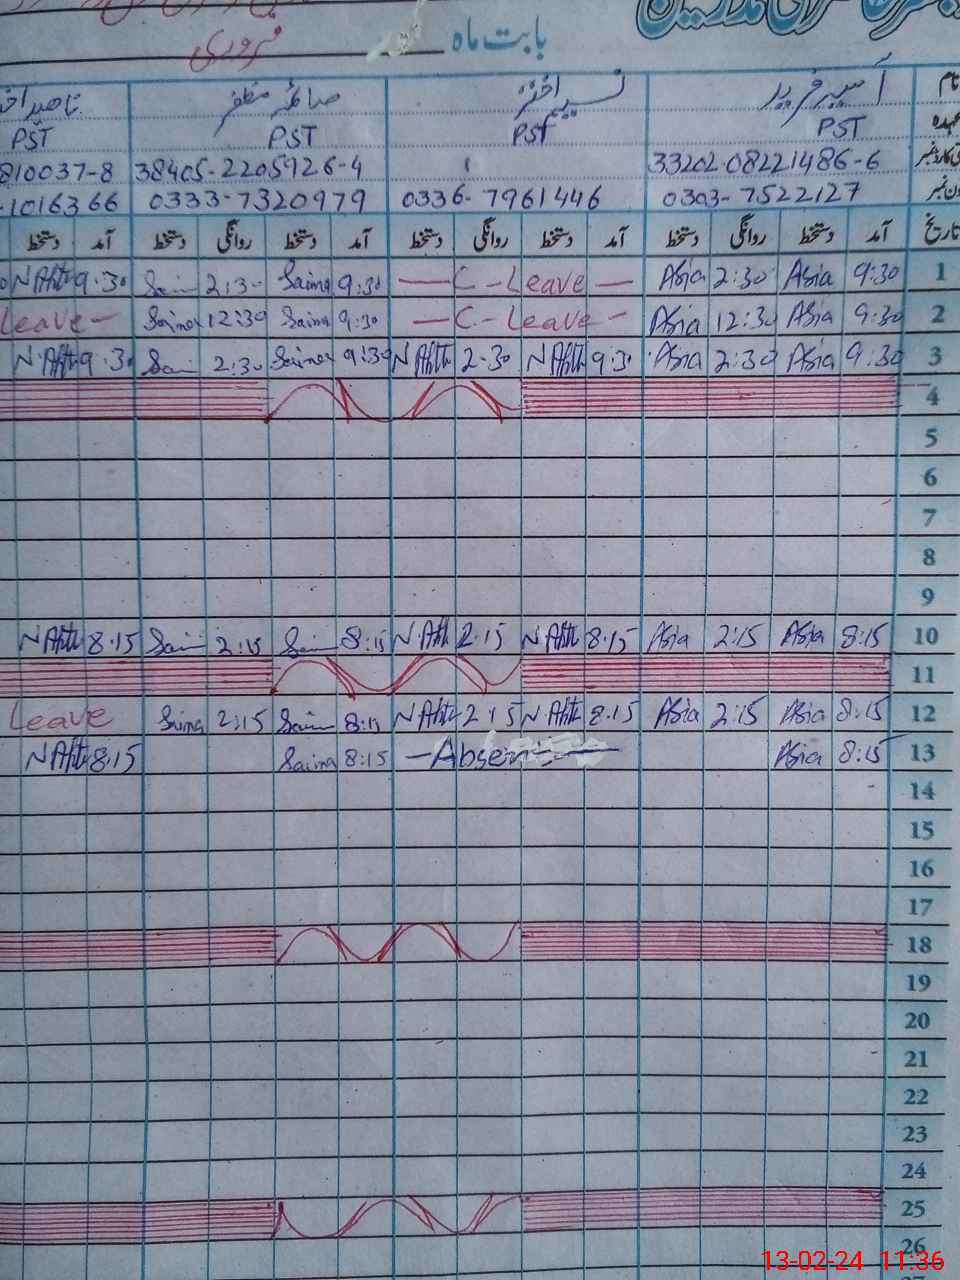 بابت ماہ فروری
نام آسیہ فرید نسیم اختر صائمہ مظفر
عہدہ PST PST PST PST
33202-08221486-6 38405-2205926-4 810037-8
0303-7522127 0336-7961446 0333-7320979 -1016366
تاریخ آمد دستخط روانگی دستخط آمد دستخط روانگی دستخط آمد دستخط روانگی دستخط آمد دستخط
1 9:30 Asia 2:30 Asia — C - Leave — 9:30 Saima 2:30 9:30 N Akh
2 9:30 Asia 12:30 Asia — C - Leave — 9:30 Saima 12:30 Saima Leave —
3 9:30 Asia 2:30 Asia 9:30 N Akh 2-30 N Akh 9:30 Saima 2:30 9:30 N Akh
4
5
6
7
8
9
10 8:15 Asia 2:15 Asia 8:15 N Akh 2:15 N Akh 8:15 2:15 8:15 N Akh
11
12 8:15 Asia 2:15 Asia 8:15 N Akh 2:15 N Akh 8:15 2:15 Saima Leave
13 8:15 Asia — Absen 8:15 Saima 8:15 N Akh
14
15
16
17
18
19
20
21
22
23
24
25
26
13-02-24 11:36